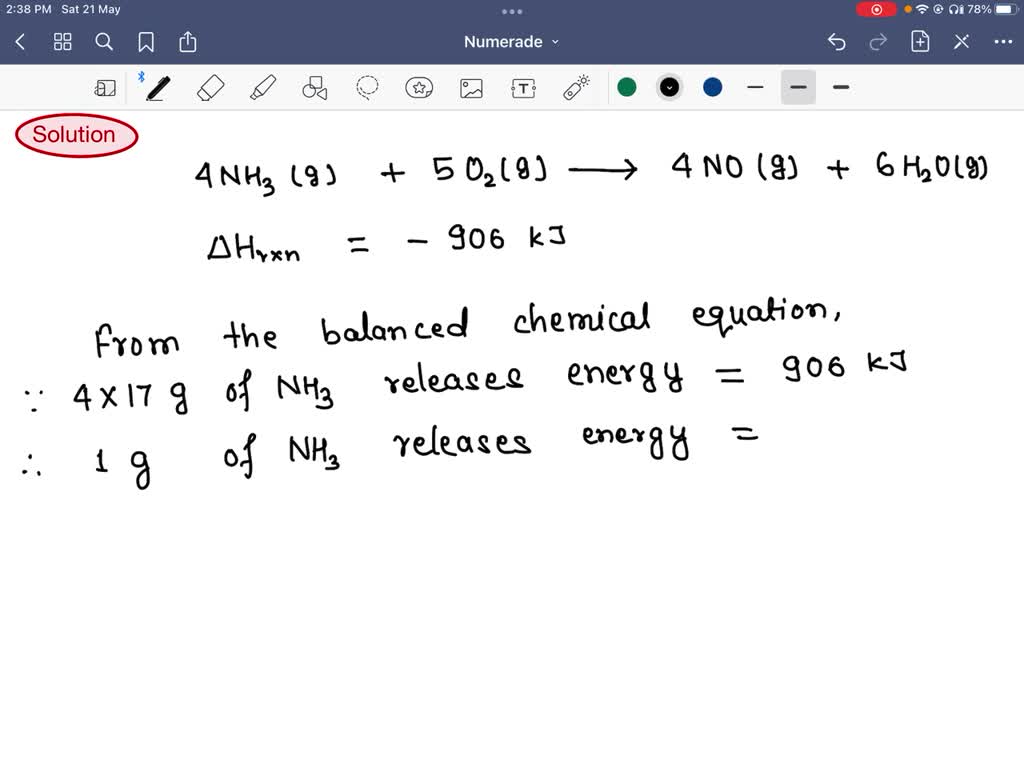 2:38 PM Sat 21 May 78%
Numerade
Solution
4NH₃ (g) + 5O₂(g) ⟶ 4NO (g) + 6H₂O(g)
ΔHrxn = - 906 kJ
From the balanced chemical equation,
∵ 4×17 g of NH₃ releases energy = 906 kJ
∴ 1 g of NH₃ releases energy =